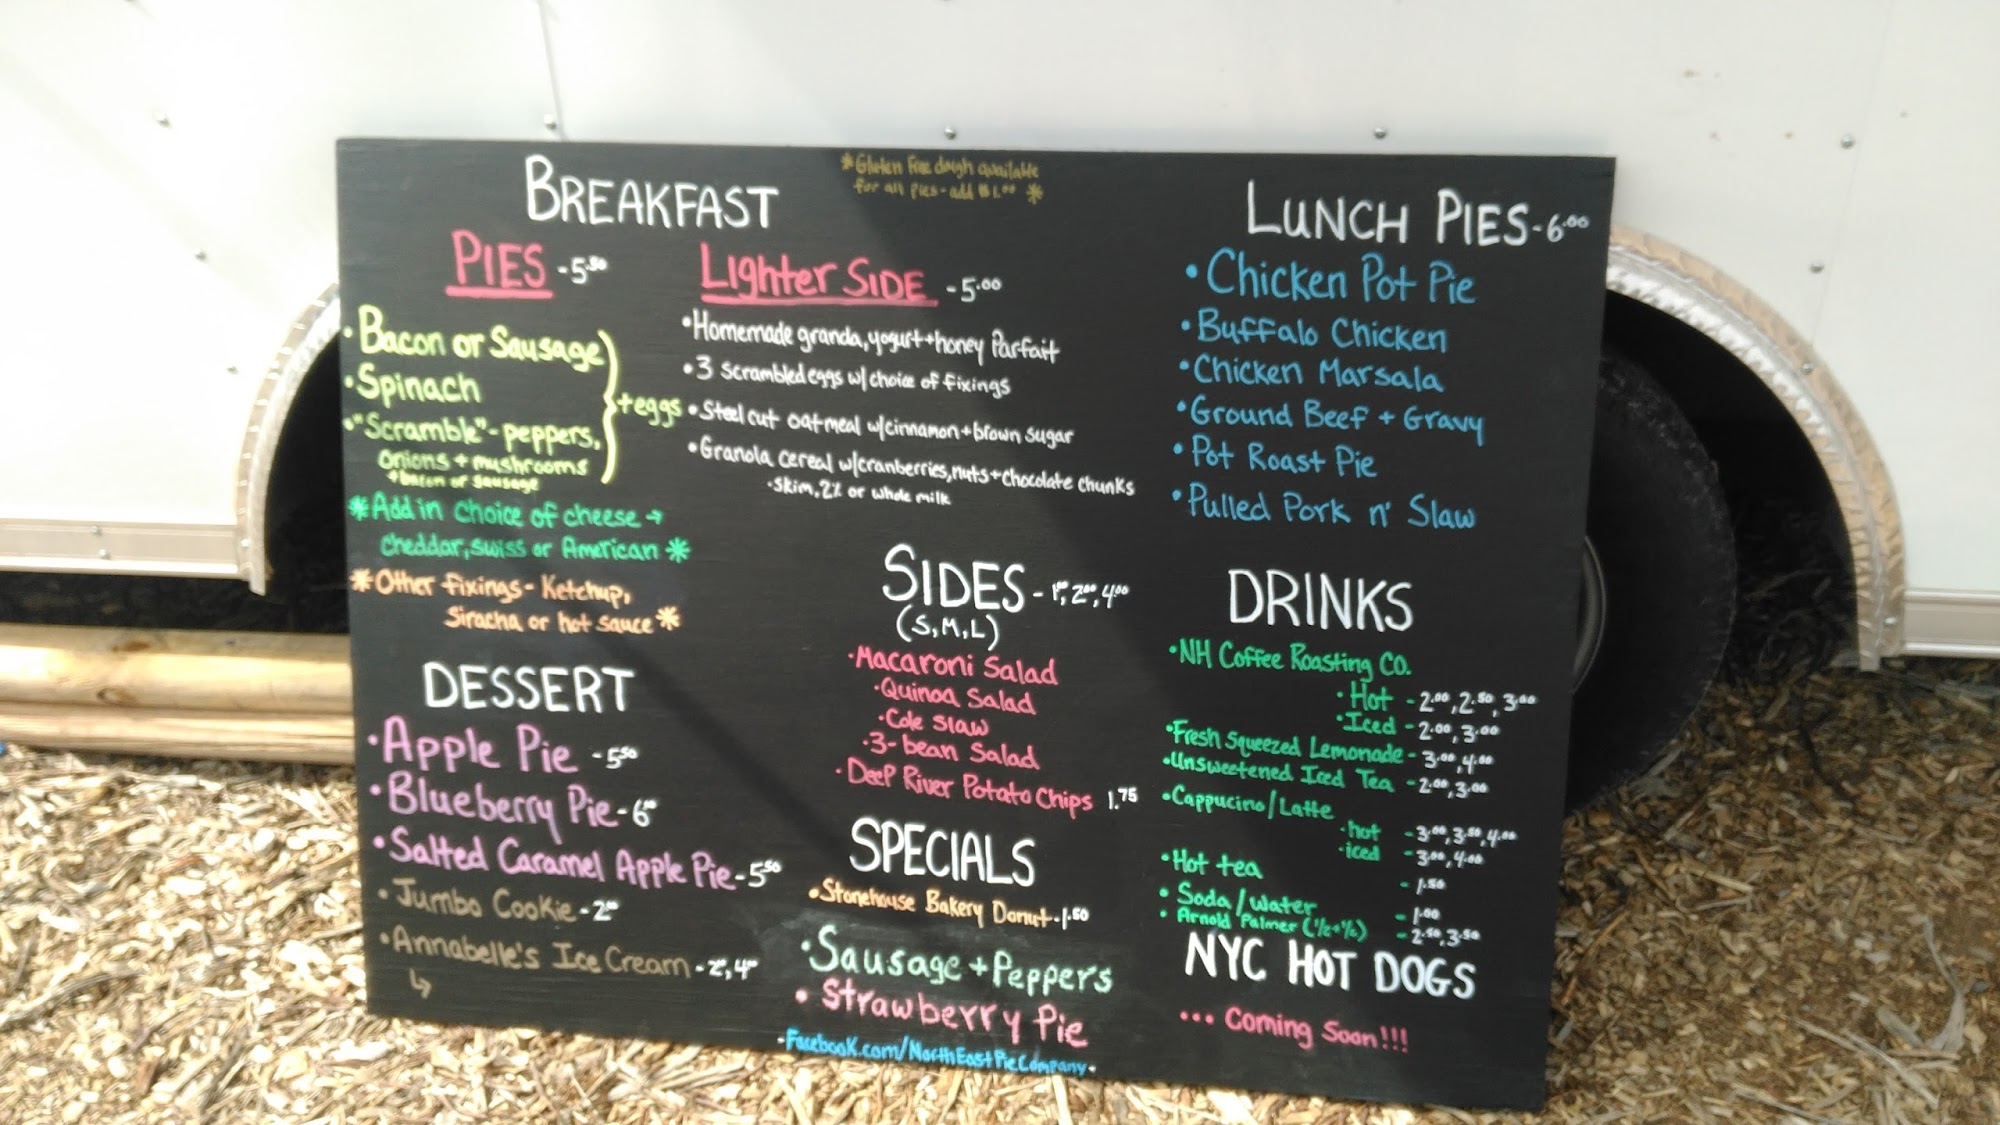 *Gluten Free dough available
for all pies - add $1.00 *
BREAKFAST
PIES - 5.50
• Bacon or Sausage
• Spinach
• "Scramble" - peppers,
onions + mushrooms
+ bacon or sausage
+ eggs
*Add in choice of cheese →
cheddar, swiss or American *
*Other fixings - Ketchup,
Siracha or hot sauce *
Lighter SIDE - 5.00
• Homemade granola, yogurt + honey Parfait
• 3 scrambled eggs w/ choice of fixings
• Steel cut oatmeal w/cinnamon + brown sugar
• Granola cereal w/cranberries, nuts + chocolate chunks
• Skim, 2% or whole milk
LUNCH PIES - 6.00
• Chicken Pot Pie
• Buffalo Chicken
• Chicken Marsala
• Ground Beef + Gravy
• Pot Roast Pie
• Pulled Pork n' Slaw
DESSERT
• Apple Pie - 5.50
• Blueberry Pie - 6.00
• Salted Caramel Apple Pie - 5.50
• Jumbo Cookie - 2.00
• Annabelle's Ice Cream - 2.00, 4.00
↳
SIDES - 1.00, 2.00, 4.00
(S, M, L)
• Macaroni Salad
• Quinoa Salad
• Cole Slaw
• 3-bean Salad
• Deep River Potato Chips 1.75
SPECIALS
• Stonehouse Bakery Donut - 1.50
• Sausage + Peppers
• Strawberry Pie
- Facebook.com/NorthEastPieCompany -
DRINKS
• NH Coffee Roasting CO.
• Hot - 2.00, 2.50, 3.00
• Iced - 2.00, 3.00
• Fresh Squeezed Lemonade - 3.00, 4.00
• Unsweetened Iced Tea - 2.00, 3.00
• Cappucino/Latte
• hot - 3.00, 3.50, 4.00
• iced - 3.00, 4.00
• Hot tea - 1.50
• Soda/water - 1.00
• Arnold Palmer (1/2 + 1/2) - 2.50, 3.50
NYC HOT DOGS
... Coming Soon!!!